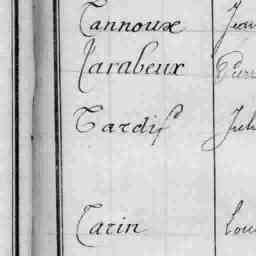 Tannoux Jean
Tarabeux Pierr
Tardif Juli
Tarin Loui